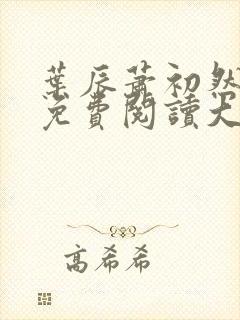 葉辰蕭初然
免費閱讀大
高希希